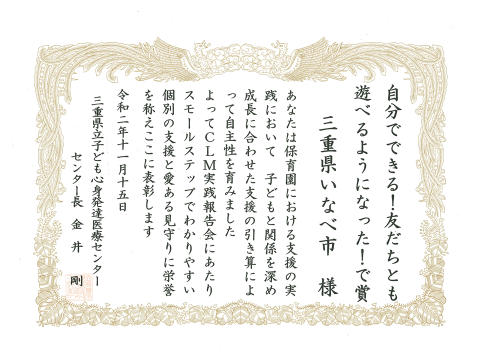 自分でできる！友だちとも
遊べるようになった！で賞
三重県いなべ市　様
あなたは保育園における支援の実
践において　子どもと関係を深め
成長に合わせた支援の引き算によ
って自主性を育みました
よってＣＬＭ実践報告会にあたり
スモールステップでわかりやすい
個別の支援と愛ある見守りに栄誉
を称えここに表彰します
令和二年十一月十五日
三重県立子ども心身発達医療センター
センター長　金井　剛